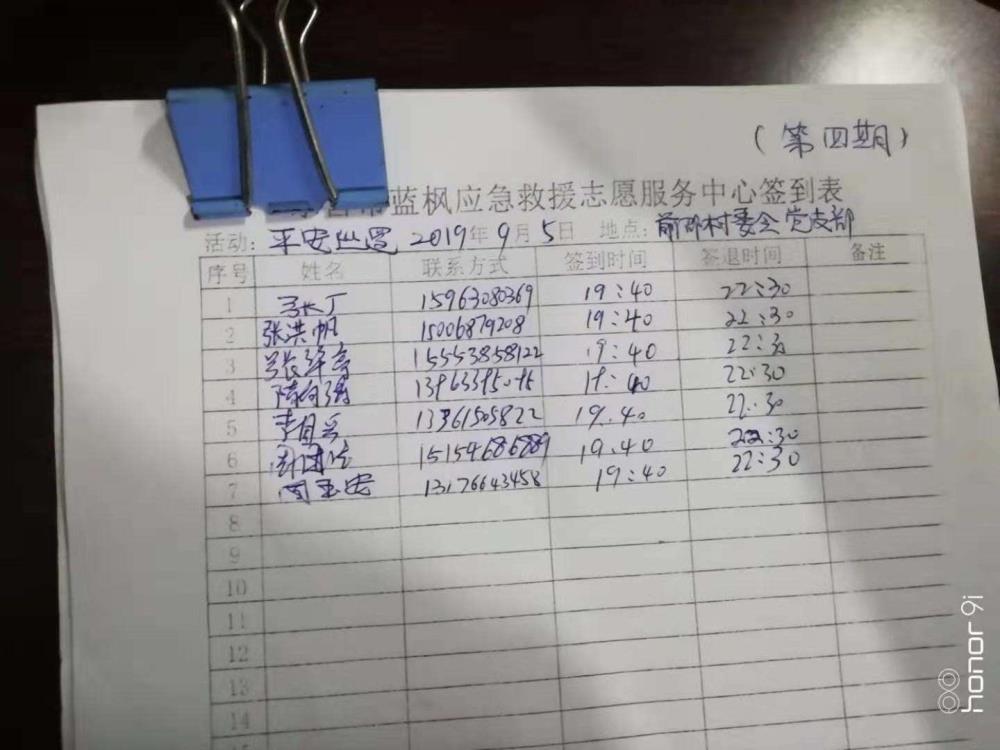 （第四期）
蓝枫应急救援志愿服务中心签到表
活动：平安巡逻 2019年9月5日 地点：前 村委会党支部
序号 姓名 联系方式 签到时间 签退时间 备注
1 15963080369 19:40 22:30
2 张洪帆 15006879208 19:40 22:30
3 15553858122 19:40 22:30
4 19:40 22:30
5 13361505822 19.40 22:30
6 15154686889 19.40 22:30
7 13176643458 19:40 22:30
8
9
10
11
12
13
14
honor 9i